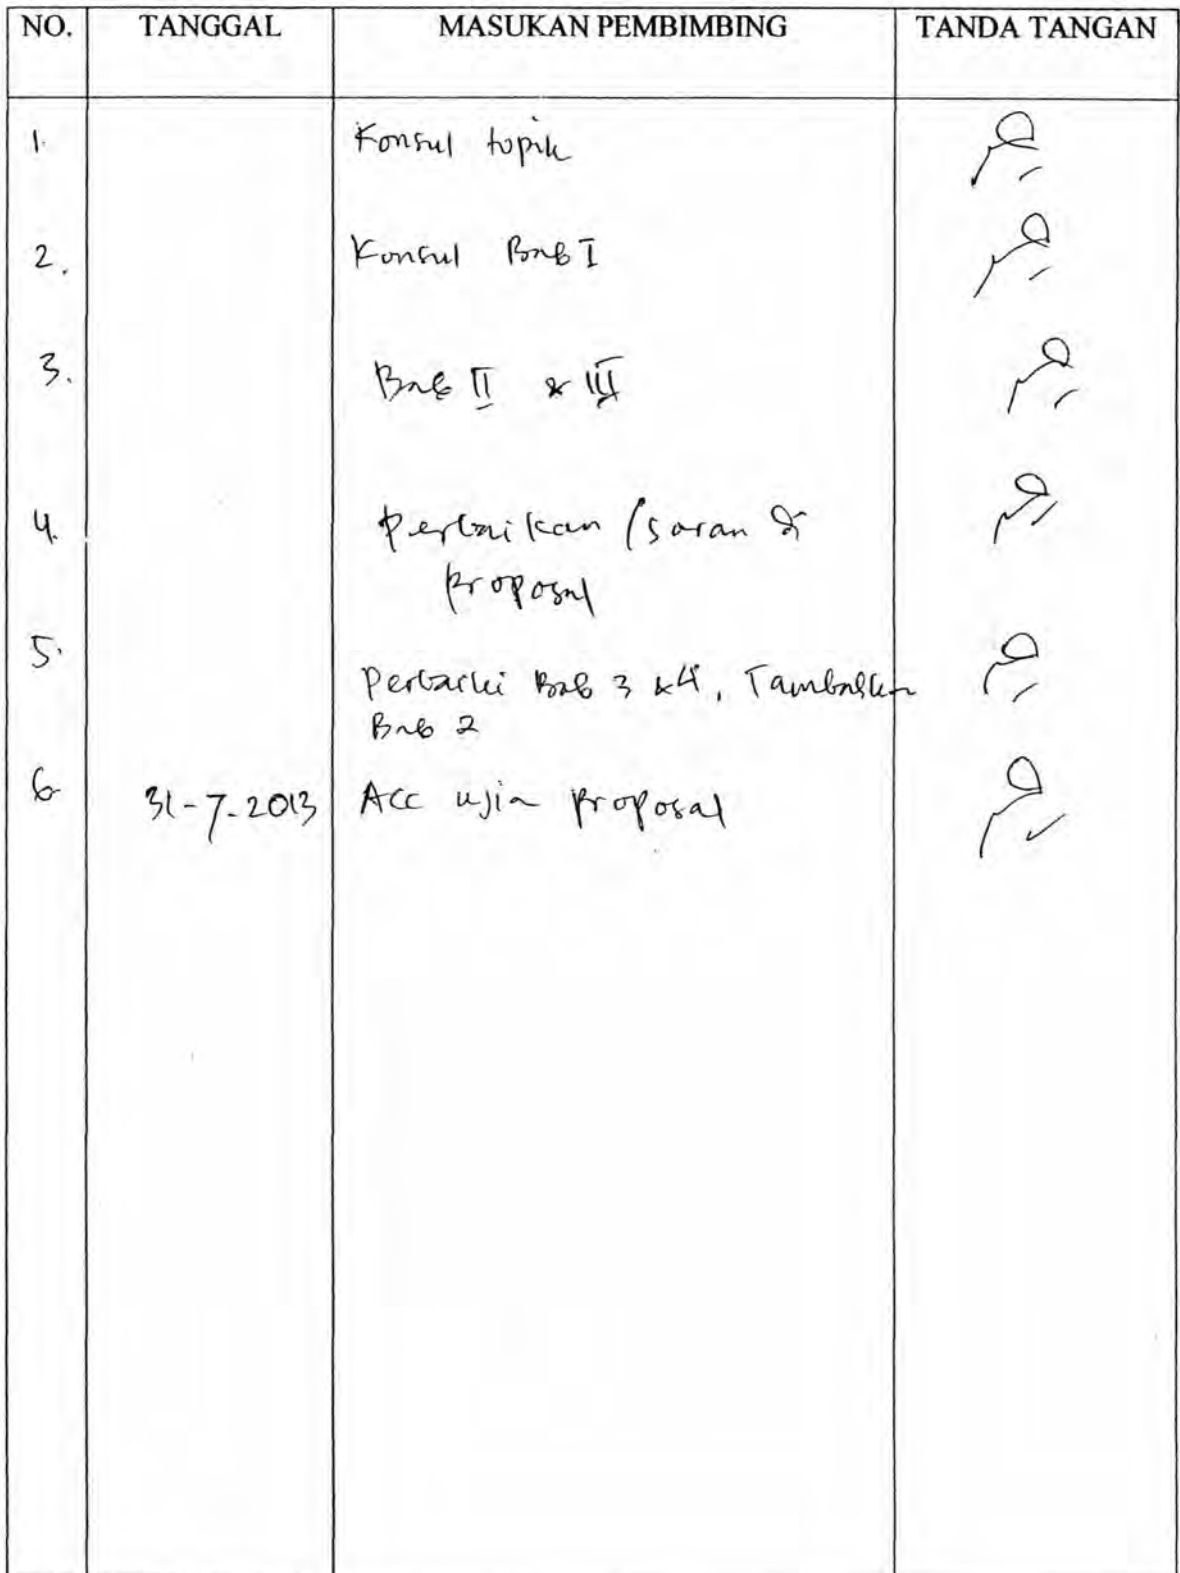 NO. TANGGAL MASUKAN PEMBIMBING TANDA TANGAN
1. Konsul topik
2. Konsul Bab I
3. Bab II & III
4. Perbaikan / saran di
proposal
5. Perbaiki Bab 3 & 4, Tambahkan
Bab 2
6 31-7-2013 ACC ujian proposal